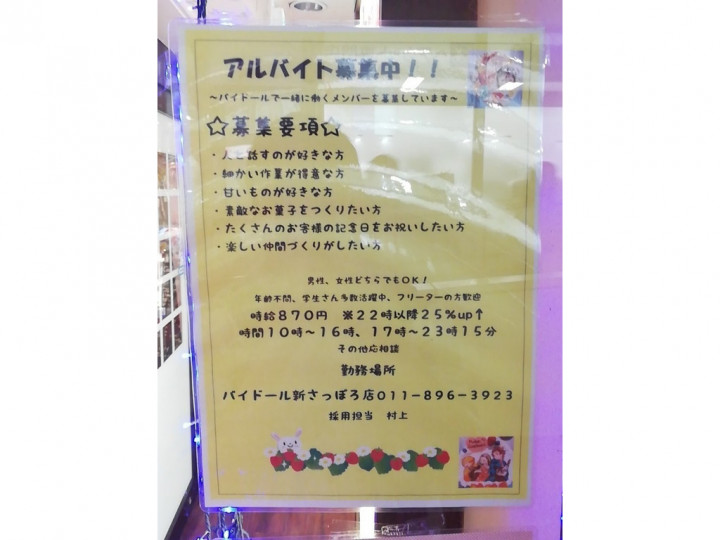 アルバイト募集中！！
～バイドールで一緒に働くメンバーを募集しています～
☆募集要項☆
・人と話すのが好きな方
・細かい作業が得意な方
・甘いものが好きな方
・素敵なお菓子をつくりたい方
・たくさんのお客様の記念日をお祝いしたい方
・楽しい仲間づくりがしたい方
男性、女性どちらでもOK！
年齢不問、学生さん多数活躍中、フリーターの方歓迎
時給870円　※22時以降25％up↑
時間10時～16時、17時～23時15分
その他応相談
勤務場所
バイドール新さっぽろ店011－896－3923
採用担当　村上